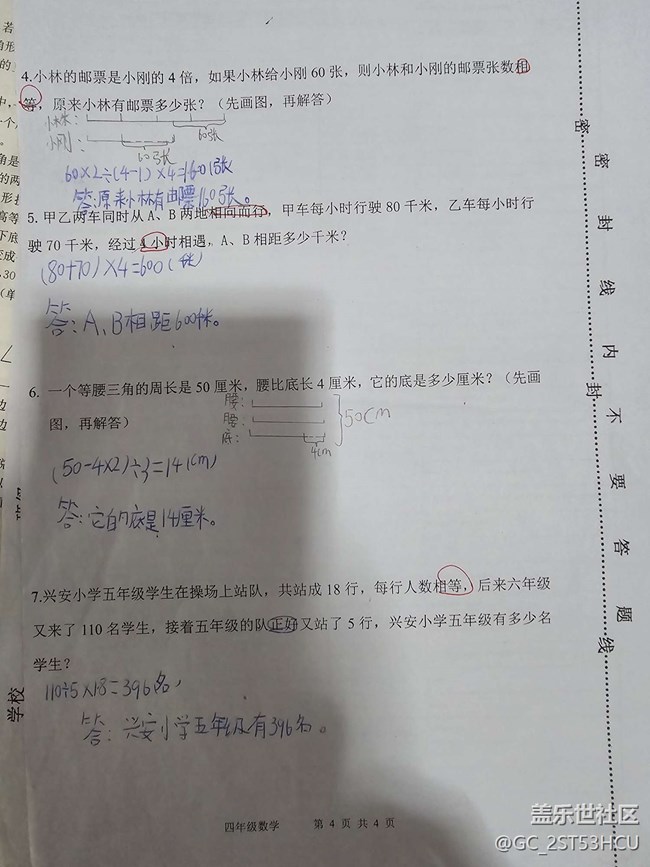 4.小林的邮票是小刚的 4 倍，如果小林给小刚 60 张，则小林和小刚的邮票张数相
等，原来小林有邮票多少张？（先画图，再解答）
小林：
60张
小刚：
60张
60×2÷(4-1)×4=160(张)
答:原来小林有邮票160张。
5. 甲乙两车同时从 A、B 两地相向而行，甲车每小时行驶 80 千米，乙车每小时行
驶 70 千米，经过 4 小时相遇，A、B 相距多少千米？
(80+70)×4=600(千米)
答:A、B相距600千米。
6. 一个等腰三角的周长是 50 厘米，腰比底长 4 厘米，它的底是多少厘米？（先画
图，再解答）
腰:
腰:
50cm
底:
4cm
(50-4×2)÷3=14(cm)
答:它的底是14厘米。
7.兴安小学五年级学生在操场上站队，共站成 18 行，每行人数相等，后来六年级
又来了 110 名学生，接着五年级的队正好又站了 5 行，兴安小学五年级有多少名
学生？
110÷5×18=396名
答:兴安小学五年级有396名。
四年级数学 第 4 页 共 4 页
学校
密 封 线 内 不 要 答 题
密
封
线
盖乐世社区
@GC_2ST53HCU